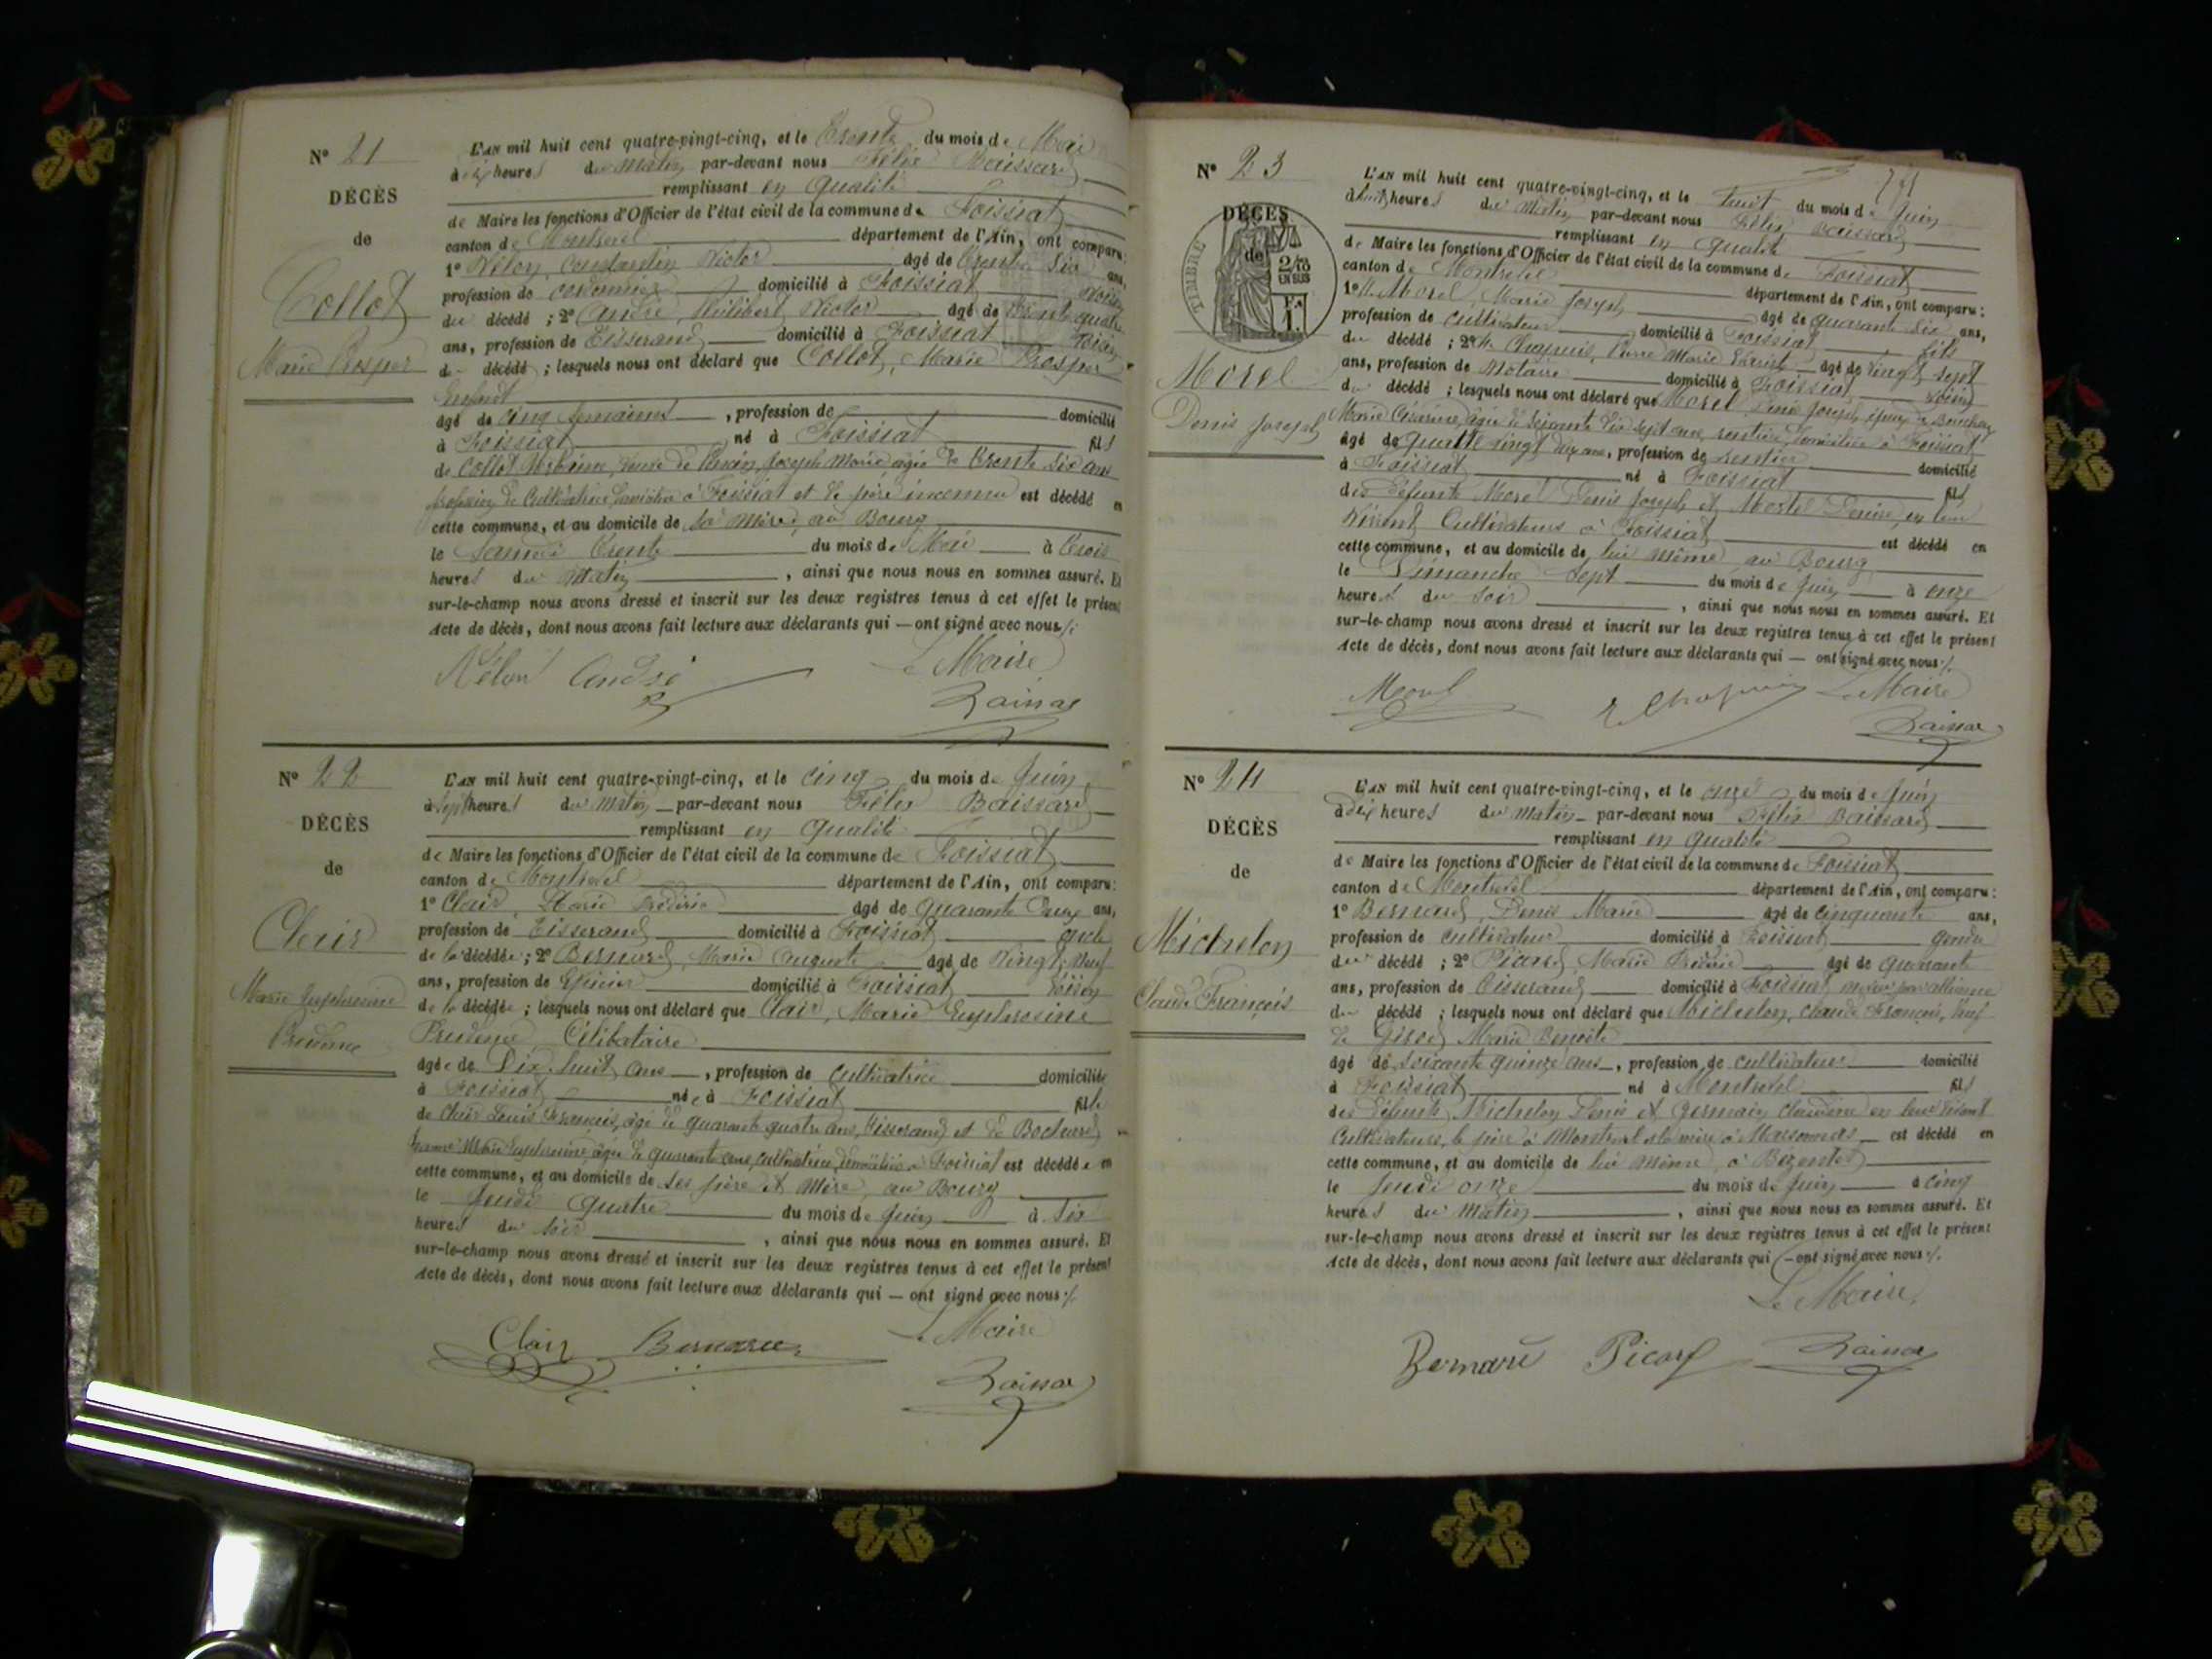 N° 21
DÉCÈS
de
Collot
Marie Prosper
L'AN mil huit cent quatre-vingt-cinq, et le Trente du mois de Mai
à dix heures du Matin par-devant nous Félix Baissard
remplissant en qualité
de Maire les fonctions d'Officier de l'état civil de la commune de Foissiat
canton de Montrevel département de l'Ain, ont comparu:
1° Vélon, Constantin Victor âgé de trente six ans,
profession de domicilié à Foissiat voisin
du décédé ; 2° André, Philibert Victor âgé de trente quatre
ans, profession de Tisserand domicilié à Foissiat voisin
du décédé ; lesquels nous ont déclaré que Collot, Marie Prosper
Enfant
âgé de cinq semaines, profession de domicilié
à Foissiat né à Foissiat fils
de Collot veuve de Joseph Marie, âgée de trente six ans
profession de Cultivatrice, domiciliée à Foissiat et de père inconnu est décédé en
cette commune, et au domicile de sa Mère, au Bourg
le Samedi trente du mois de Mai à trois
heures du Matin, ainsi que nous nous en sommes assuré. Et
sur-le-champ nous avons dressé et inscrit sur les deux registres tenus à cet effet le présent
Acte de décès, dont nous avons fait lecture aux déclarants qui — ont signé avec nous ./.
Vélon André Le Maire
Baissard
N° 22
DÉCÈS
de
Clair
Marie Euphrosine
Prudence
L'AN mil huit cent quatre-vingt-cinq, et le cinq du mois de Juin
à sept heures du Matin par-devant nous Félix Baissard
remplissant en qualité
de Maire les fonctions d'Officier de l'état civil de la commune de Foissiat
canton de Montrevel département de l'Ain, ont comparu:
1° Clair, Marie Frédéric âgé de quarante deux ans,
profession de Tisserand domicilié à Foissiat oncle
de la décédée ; 2° Bernard, Marie Auguste âgé de Vingt Neuf
ans, profession de Epicier domicilié à Foissiat voisin
de la décédée ; lesquels nous ont déclaré que Clair, Marie Euphrosine
Prudence, Célibataire
âgée de Dix huit ans, profession de cultivatrice domiciliée
à Foissiat née à Foissiat fille
de Clair Louis François, âgé de quarante quatre ans, Tisserand et de Bochard
Marie Euphrosine, âgée de quarante ans, cultivatrice, domiciliés à Foissiat est décédée en
cette commune, et au domicile de ses père et Mère, au Bourg
le Jeudi quatre du mois de Juin à six
heures du soir, ainsi que nous nous en sommes assuré. Et
sur-le-champ nous avons dressé et inscrit sur les deux registres tenus à cet effet le présent
Acte de décès, dont nous avons fait lecture aux déclarants qui — ont signé avec nous ./.
Clair Bernard Le Maire
Baissard
N° 23
DÉCÈS
de
TIMBRE
2/10 EN SUS
1 F.
Morel
Denis Joseph
L'AN mil huit cent quatre-vingt-cinq, et le huit du mois de Juin
à huit heures du Matin par-devant nous Félix Baissard
remplissant en qualité
de Maire les fonctions d'Officier de l'état civil de la commune de Foissiat
canton de Montrevel département de l'Ain, ont comparu:
1° M. Morel, Marie Joseph âgé de quarante six ans,
profession de Cultivateur domicilié à Foissiat fils
du décédé ; 2° M. Chapuis, Pierre Marie âgé de vingt sept
ans, profession de Notaire domicilié à Foissiat voisin
du décédé ; lesquels nous ont déclaré que Morel, Denis Joseph, époux de
Marie âgée de soixante dix sept ans, rentière, domiciliée à Foissiat
âgé de quatre vingt dix ans, profession de rentier domicilié
à Foissiat né à Foissiat fils
des défunts Morel Denis Joseph et Denise, en leur
Vivant Cultivateurs à Foissiat est décédé en
cette commune, et au domicile de lui même au Bourg
le Dimanche sept du mois de Juin à onze
heures du soir, ainsi que nous nous en sommes assuré. Et
sur-le-champ nous avons dressé et inscrit sur les deux registres tenus à cet effet le présent
Acte de décès, dont nous avons fait lecture aux déclarants qui — ont signé avec nous ./.
Morel Chapuis Le Maire
Baissard
N° 24
DÉCÈS
de
Michelon
Claude François
L'AN mil huit cent quatre-vingt-cinq, et le onze du mois de Juin
à dix heures du Matin par-devant nous Félix Baissard
remplissant en qualité
de Maire les fonctions d'Officier de l'état civil de la commune de Foissiat
canton de Montrevel département de l'Ain, ont comparu:
1° Bernard, Denis Marie âgé de cinquante ans,
profession de cultivateur domicilié à Foissiat gendre
du décédé ; 2° Picard, Marie Frédéric âgé de quarante
ans, profession de Tisserand domicilié à Foissiat neveu par alliance
du décédé ; lesquels nous ont déclaré que Michelon, Claude François, Veuf
de Marie Benoite
âgé de soixante quinze ans, profession de cultivateur domicilié
à Foissiat né à Montrevel fils
des défunts Michelon Denis et Germain Claudine en leur vivant
Cultivateurs, le père à Montrevel et la mère à Marsonnas est décédé en
cette commune, et au domicile de lui même, à
le Jeudi onze du mois de Juin à cinq
heures du Matin, ainsi que nous nous en sommes assuré. Et
sur-le-champ nous avons dressé et inscrit sur les deux registres tenus à cet effet le présent
Acte de décès, dont nous avons fait lecture aux déclarants qui — ont signé avec nous ./.
Le Maire,
Bernard Picard Baissard